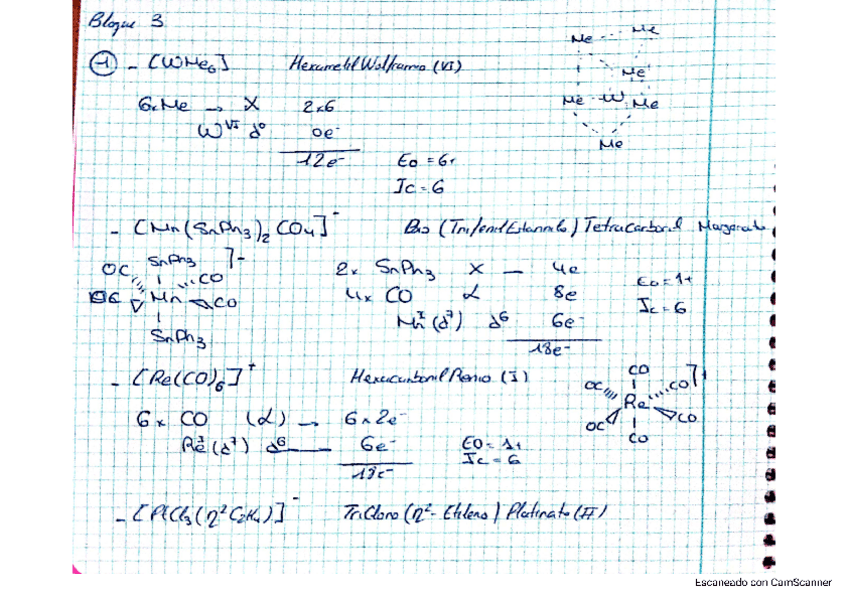 Bloque 3
① - [WMe₆] Hexametil Wolframio (VI)
Me --- Me
Me
Me -- W Me
Me
6xMe → X 2x6
W^VI d⁰ 0e⁻
12e⁻
Eo = 6+
Ic = 6
- [Mn(SnPh₃)₂ CO₄]⁻ Bis (Trifenil Estannilo) Tetracarbonil Manganato
SnPh₃ ]⁻
OC CO
OC Mn CO
SnPh₃
2x SnPh₃ X — 4e
4x CO L 8e
Mn^I (d⁷) d⁶ 6e⁻
18e⁻
Eo = 1+
Ic = 6
- [Re(CO)₆]⁺ Hexacarbonil Renio (I)
6x CO (L) → 6x2e⁻
Re^I (d⁷) d⁶ — 6e⁻
18e⁻
EO = 1+
Ic = 6
CO ]⁺
OC CO
Re
OC CO
CO
- [PtCl₃(η²C₂H₄)]⁻ TriCloro (η²- Etileno) Platinato (II)
Escaneado con CamScanner